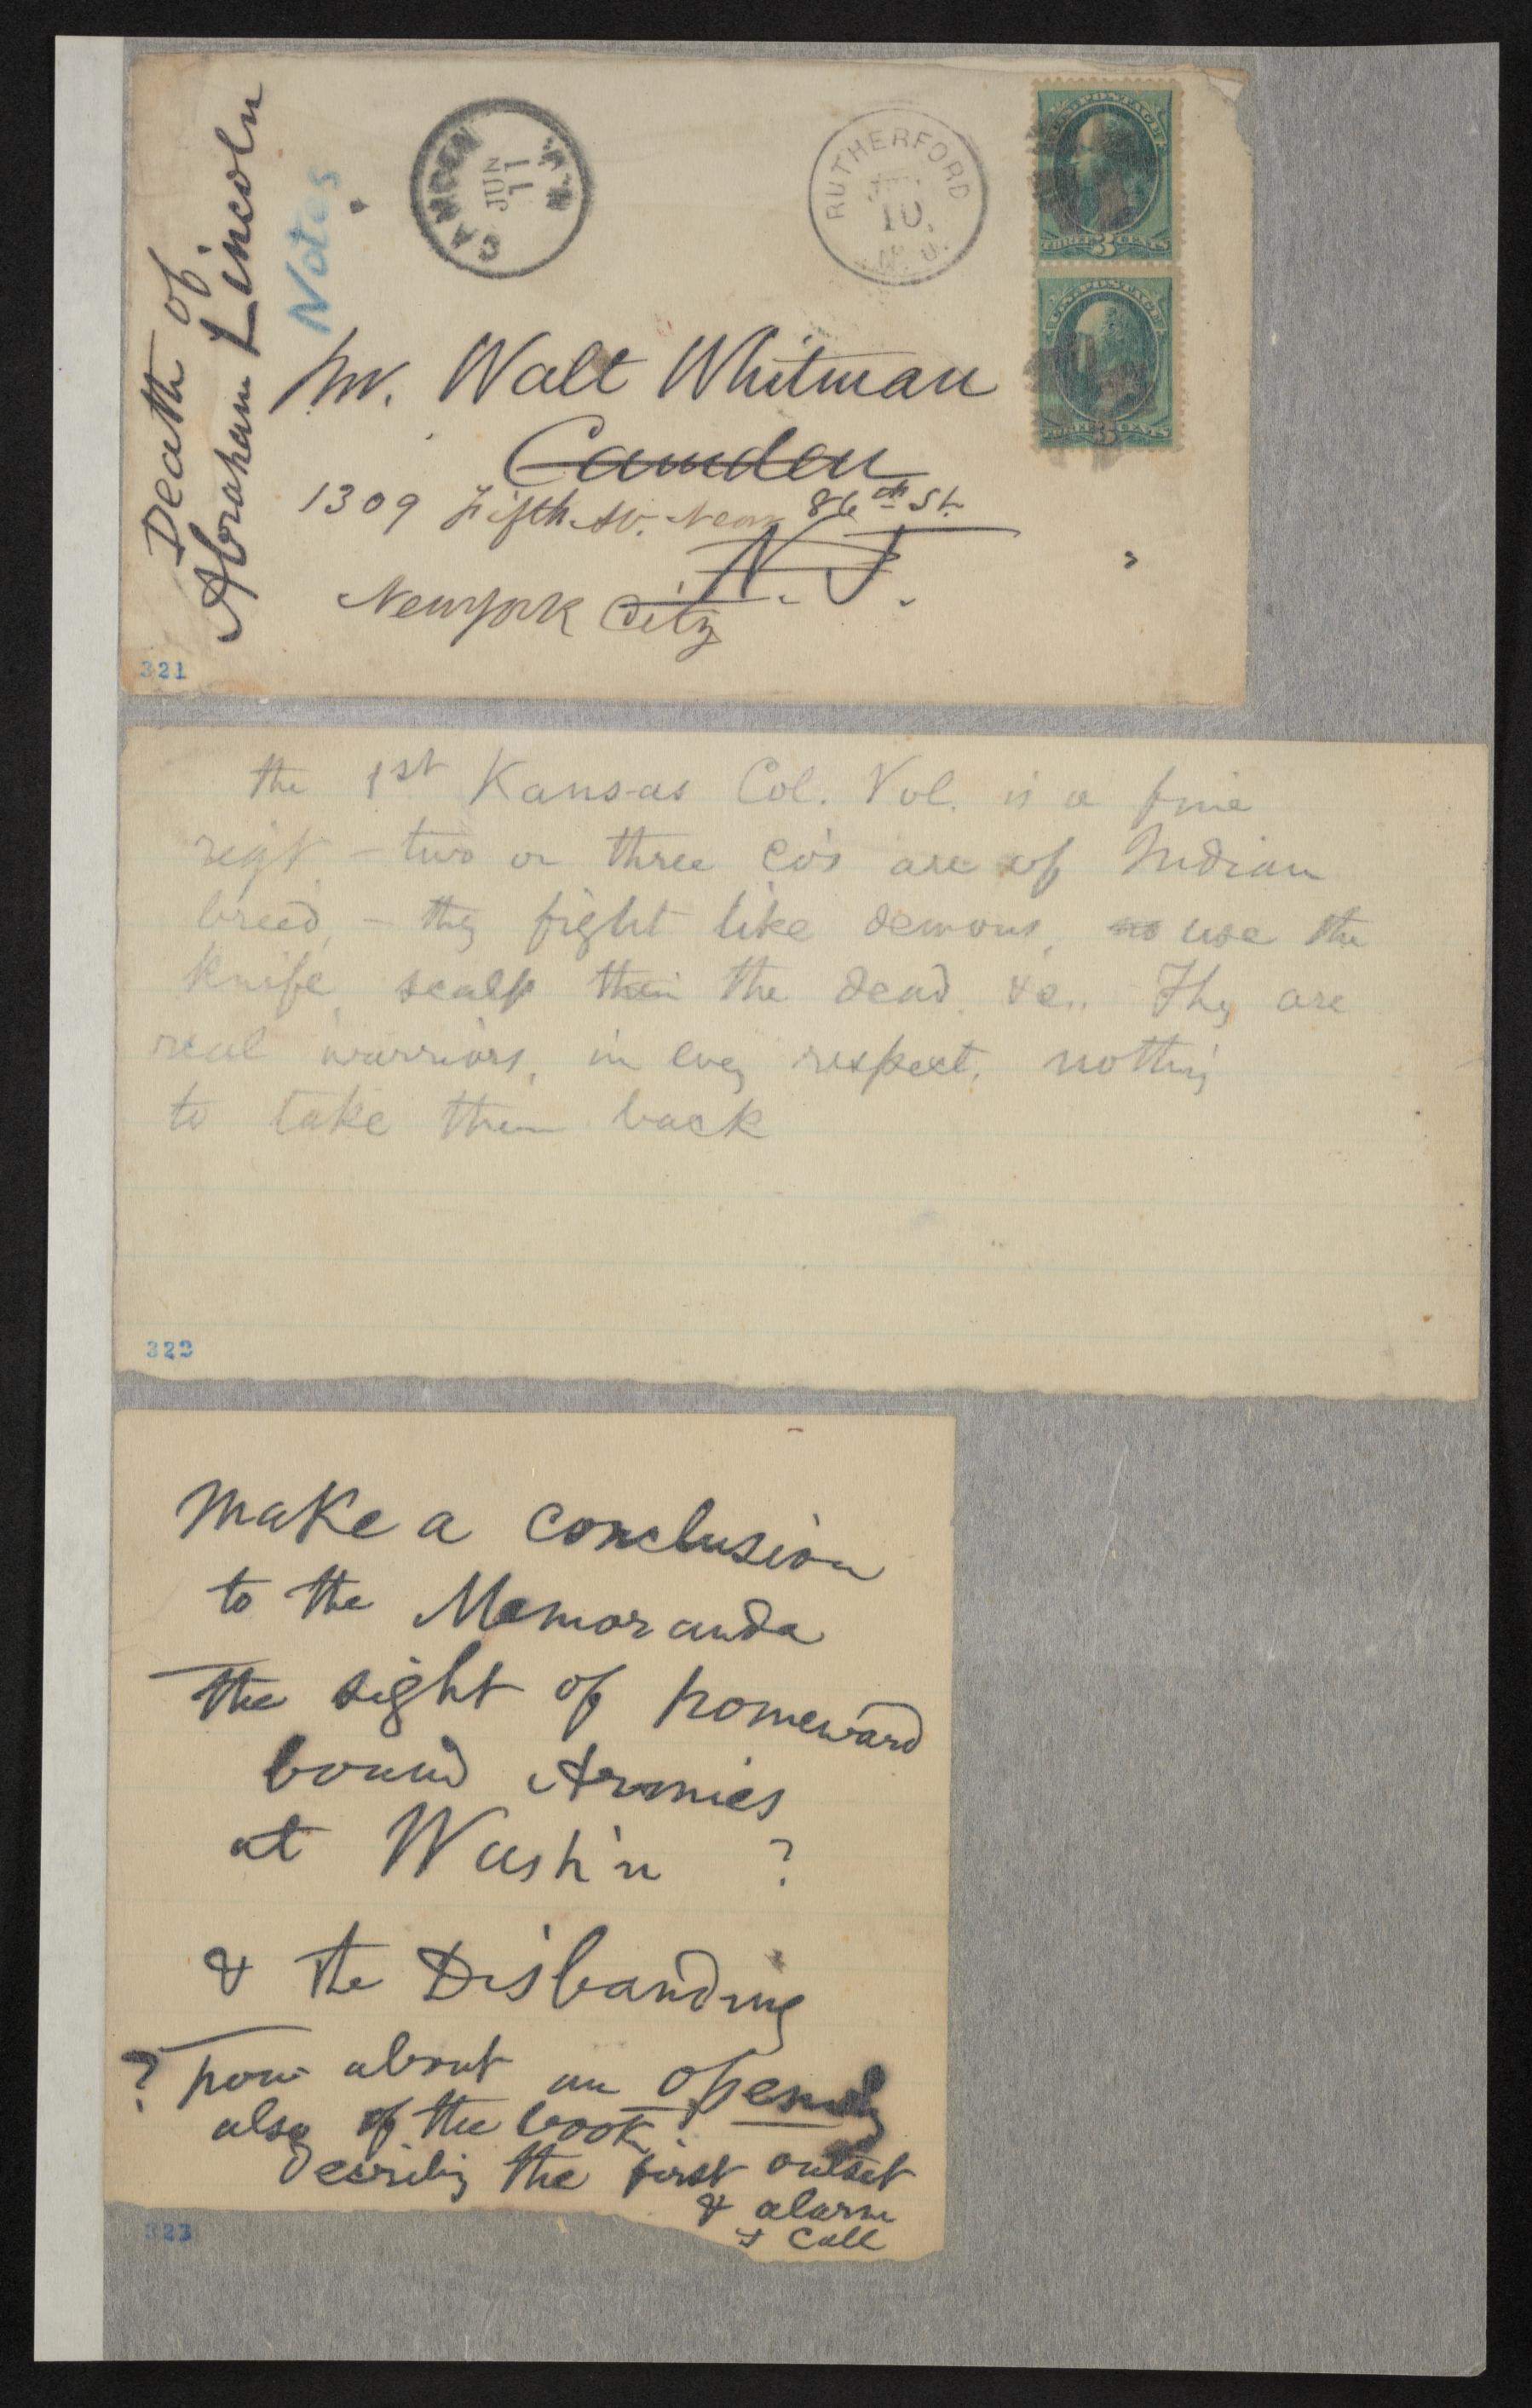 Death of
Abraham Lincoln
Notes
CAMDEN
JUN
11
N.J.
RUTHERFORD
10
N.J.
U.S. POSTAGE
THREE 3 CENTS
U.S. POSTAGE
THREE 3 CENTS
Mr. Walt Whitman
Camden
1309 Fifth av. near 86th St.
N. J.
New York City
321
the 1st Kansas Col. Vol. is a fine
regt – two or three co's are of Indian
breed, – they fight like demons, use the
knife, scalp their the dead, &c.. They are
real warriors, in every respect, nothing
to take them back
322
Make a conclusion
to the Memoranda
The sight of homeward
bound Armies
at Wash'n ?
& the Disbanding
? how about an opening
also of the book
describing the first outset
& alarm
& call
323